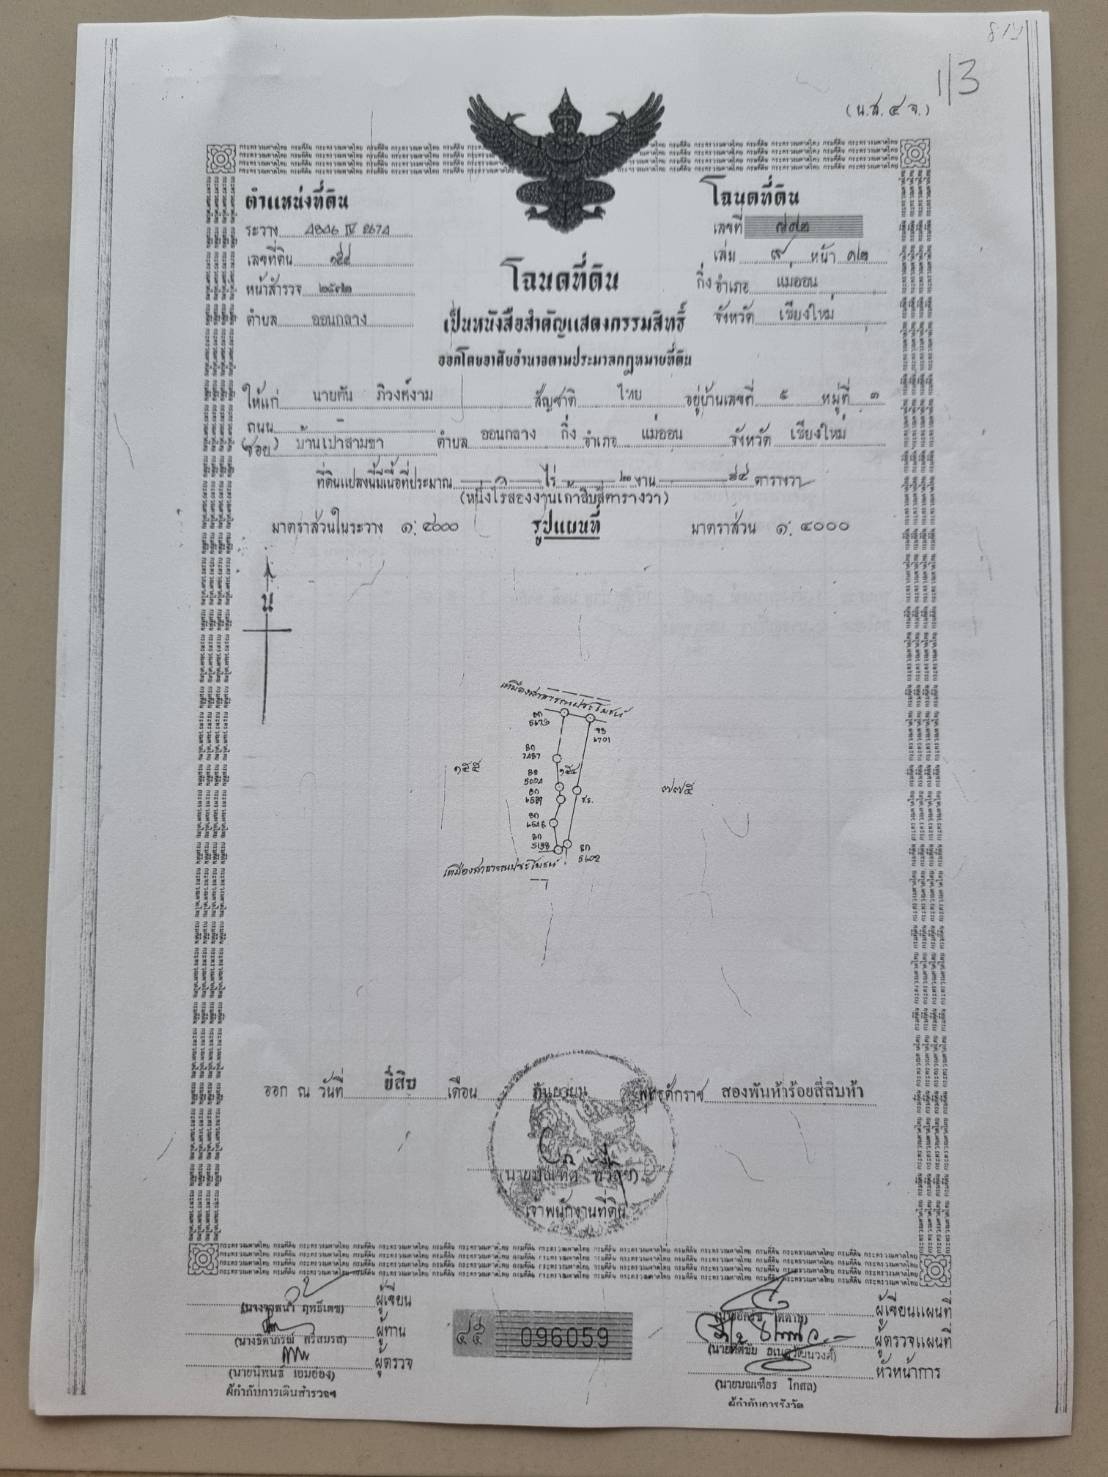 1/3
(น.ส. ๔ จ.)
ตำแหน่งที่ดิน
ระวาง 4846 IV 2674
เลขที่ดิน ๑๕๔
หน้าสำรวจ ๒๕๗๒
ตำบล ออนกลาง
โฉนดที่ดิน
เลขที่ ๗๗๒
เล่ม ๙ หน้า ๗๒
กิ่งอำเภอ แม่ออน
จังหวัด เชียงใหม่
โฉนดที่ดิน
เป็นหนังสือสำคัญแสดงกรรมสิทธิ์
ออกโดยอาศัยอำนาจตามประมวลกฎหมายที่ดิน
ให้แก่ นายตัน ภิวงค์งาม สัญชาติ ไทย อยู่บ้านเลขที่ ๕ หมู่ที่ ๑
ถนน
(ซอย) บ้านเปาสามขา ตำบล ออนกลาง กิ่งอำเภอ แม่ออน จังหวัด เชียงใหม่
ที่ดินแปลงนี้มีเนื้อที่ประมาณ ๑ ไร่ ๒ งาน ๙๔ ตารางวา
(หนึ่งไร่สองงานเก้าสิบสี่ตารางวา)
มาตราส่วนในระวาง ๑:๔๐๐๐ รูปแผนที่ มาตราส่วน ๑:๔๐๐๐
น
เหมืองสาธารณประโยชน์
๑๕๕
๑๕๔
๗๗๕
เหมืองสาธารณประโยชน์
ออก ณ วันที่ ยี่สิบ เดือน กันยายน พุทธศักราช สองพันห้าร้อยสี่สิบห้า
เจ้าพนักงานที่ดิน
ผู้เขียน
ผู้ทาน
ผู้ตรวจ
(นายนิพนธ์ เอมย่อง)
ผู้กำกับการเดินสำรวจฯ
096059
ผู้เขียนแผนที่
ผู้ตรวจแผนที่
หัวหน้าการ
(นายมณเฑียร โกสล)
ผู้กำกับการรังวัด